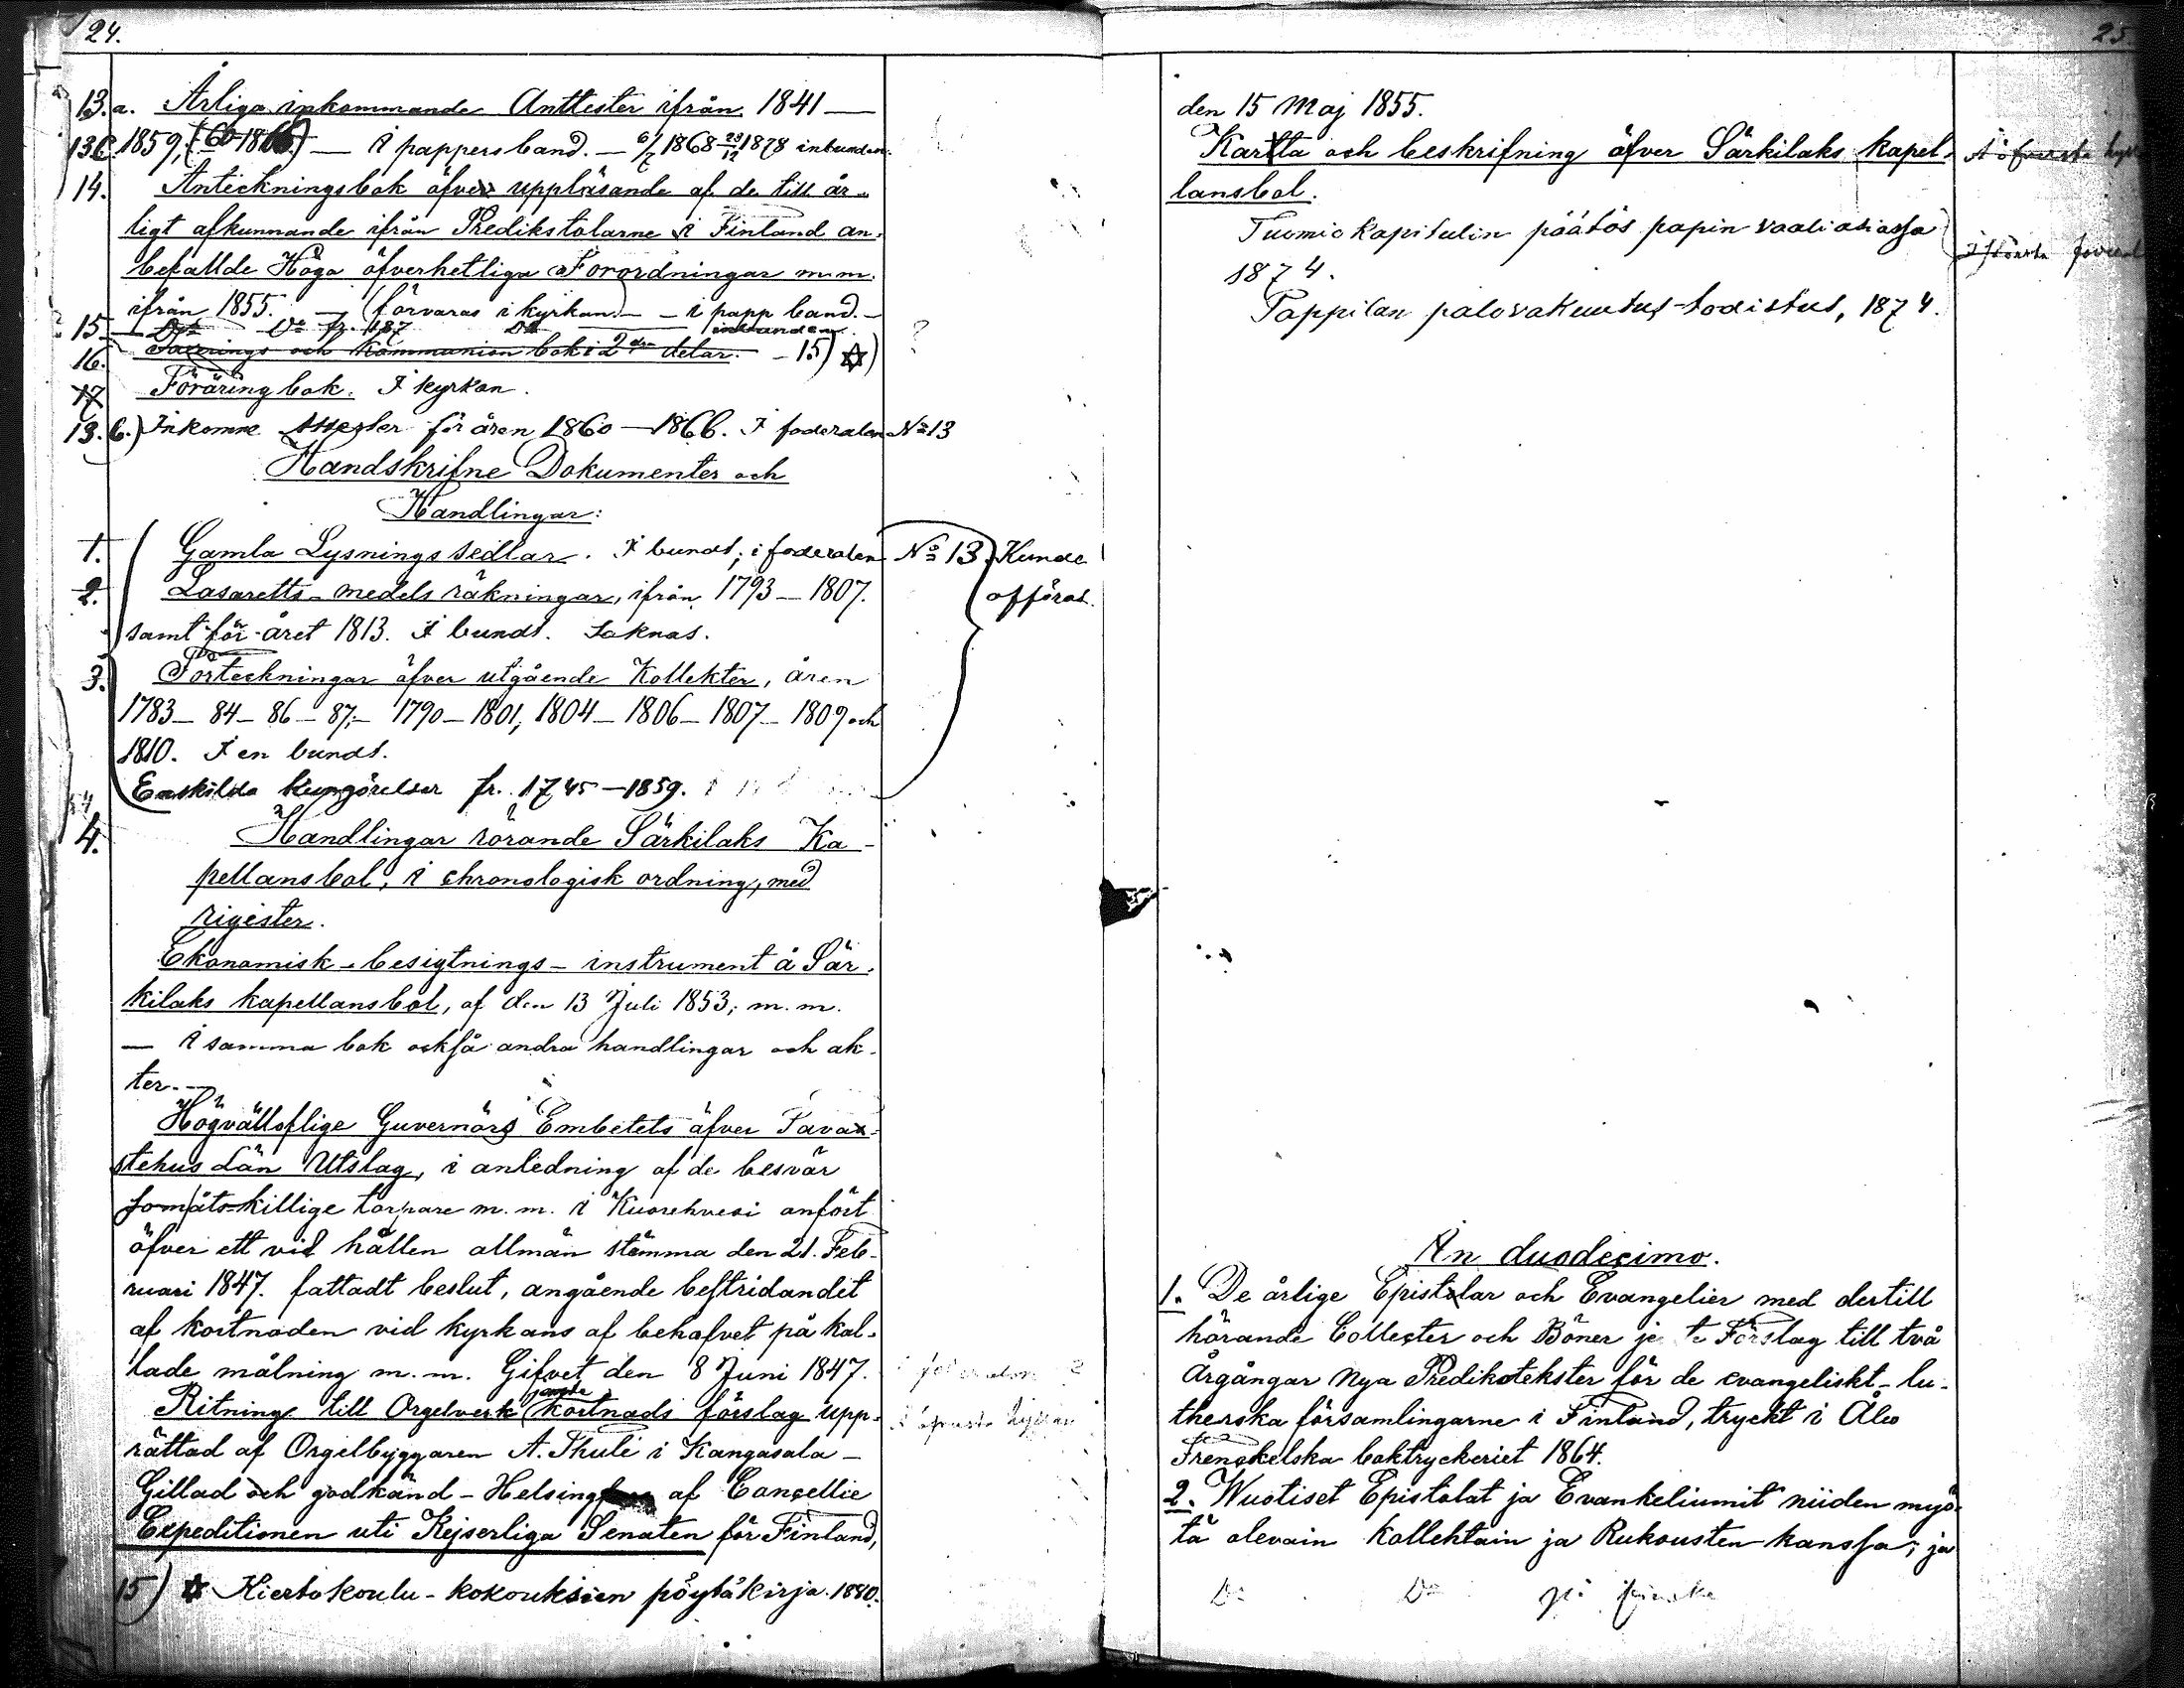 24.
13. a. Årliga inkommande Anttester ifrån 1841 —
13 c. 1859, (60-1866) — i pappers band. — 6/7 1868 - 23/12 1878 inbunden.
14. Anteckningsbok öfver uppläsande af de till år-
ligt afkunnande ifrån Predikstolarne i Finland an-
befallde Höga öfverhetliga Forordningar m.m.
ifrån 1855. — (förvaras i kyrkan) — i papp band. —
15 — Do Do fr. 187 Do inbunden. ?
16. och Kommunion bok i 2 delar. — 15) ☆)
17 Föräring bok. I kyrkan.
13. b.) Inkomne Attester för åren 1860 — 1866. I foderalen No 13
Handskrifne Dokumenter och
Handlingar:
1. Gamla Lysnings sedlar. I bundt; i foderalen No 13. Kunde
2. Lasaretts-medels räkningar, ifrån 1793 — 1807. afföras.
samt för året 1813. I bundt. Saknas.
3. Förteckningar öfver utgående Kollekter, åren
1783 — 84 — 86 — 87, — 1790 — 1801, 1804 — 1806 — 1807 — 1809 och
1810. I en bundt.
Enskilda kungörelser fr. 1745 — 1859.
4. Handlingar rörande Särkilaks Ka-
pellansbol, i chronologisk ordning, med
rigister.
Ekonomisk - besigtnings - instrument å Sär-
kilaks kapellansbol, af den 13 Juli 1853; m. m.
— i samma bok också andra handlingar och ak-
ter. —
Högvälloflige Guvernörs Embetets öfver Tava-
stehus Län Utslag, i anledning af de besvär
som åtskillige torpare m. m. i Kuorehvesi anfört
öfver ett vid hållen allmän stämma den 21. Feb-
ruari 1847. fattadt beslut, angående bestridandet
af kostnaden vid kyrkans af behofvet på kal-
lade målning m. m. Gifvet den 8 Juni 1847.
Ritning till Orgelverk jamte kostnads förslag upp-
rättad af Orgelbyggaren A. Thulé i Kangasala —
Gillad och godkänd — af Cancellie
Expeditionen uti Kejserliga Senaten för Finland,
15) ☆ Kiertokoulu - kokouksien pöytäkirja. 1880.
25.
den 15 Maj 1855.
Kartta och beskrifning öfver Särkilaks kapel-
lansbol.
Tuomiokapitulin päätös papin vaaliasiassa
1874.
Pappilan palovakuutus-todistus, 1874.
In duodecimo.
1. De årlige Epistolar och Evangelier med dertill
hörande Collecter och Böner Förslag till två
Årgångar nya Predikotekster för de evangeliskt-lu-
therska församlingarne i Finland, tryckt i Åbo
Frenckelska boktryckeriet 1864.
2. Wuotiset Epistolat ja Evankeliumit niiden myö-
tä olevain kollehtain ja Rukousten kanssa; ja
Do Do på finska